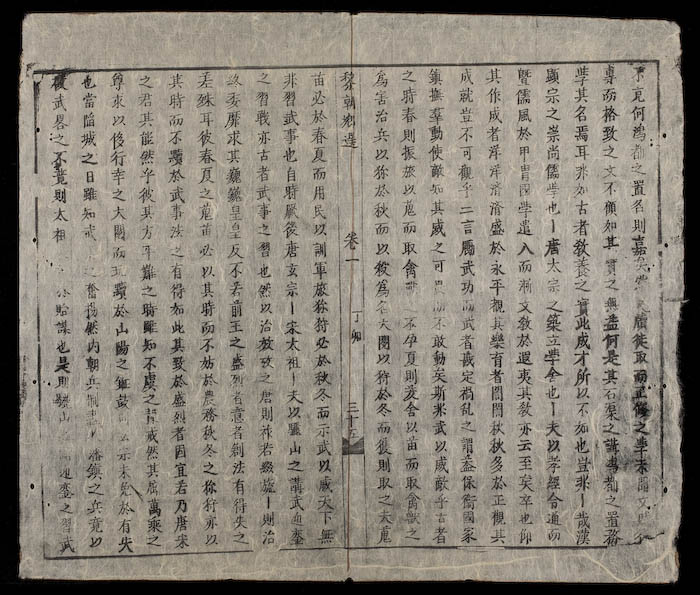 不克何鴻都之置名則嘉矣
專而格致之文不顧如其實之無益何是其石渠之講鴻都之置務
學其名焉耳非如古者敎養之實此成才所以不如也豈非一哉漢
顯宗之崇尚儒學也一唐太宗之築立學舍也一夫以孝經令通而
曁儒風於甲冑國學遣入而漸文敎於遐夷其敎亦云至矣卒也卽
其作成者洋洋濟濟盛於永平觀其樂育者誾誾秩秩多於正觀其
成就豈不可觀乎二言屬武功而武者戡定禍乱之謂盖保衛國家
鎮撫羣動使敵知其威之可畏而不敢動矣斯非武以威敵乎古者
之時春則振旅以蒐而取禽獸不孕夏則爰舍以苗而取禽獸之
爲害治兵以狝於秋而以殺爲名大閱以狩於冬而獲則取之夫蒐
黎朝鄕選 卷一 丁卯 三十五
苗必於春夏而用民以訓軍旅狝狩必於秋冬而示武以威天下無
非習武事也自時厥後唐玄宗一宋太祖一夫以驪山之講武迺鑾
之習戰亦古者武事之習也然以治放攷之唐則祚若綴旒一則治
終委靡求其巍巍皇皇反不若前王之盛烈者意者創法有得失之
差殊耳彼春夏之蒐苗必以其時而不妨於農務秋冬之狝狩亦以
其時而不黷於武事法之有得如此其致於盛烈者固宜若乃唐宋
之君其能然乎彼其方平難之時雖知不虞之警戒然其屈萬乘之
尊求以俊行幸之大閱而玩黷於山陽之鉦鼓示未免於有失
也當陥城之日雖知戒之奮揚然內朝兵制藩鎮之兵竟以
復武畧之不竟則太祖貽謀也是則驪山迺鑾之習武